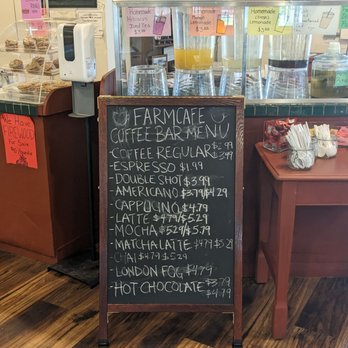 Homemade
Hibiscus
Iced Tea
$3.99
Homemade
$3.99
Homemade
Lemonade
$3.99
We Have
FIREWOOD
For Sale
FARMCAFE
COFFEE BAR MENU
-COFFEE REGULAR $2.99
$3.99
-ESPRESSO $1.99
-DOUBLE SHOT $3.99
-AMERICANO $3.79/$4.29
-CAPPUCINO $4.79
-LATTE $4.79/$5.29
-MOCHA $5.29/$5.79
-MATCHA LATTE $4.79/5.29
-CHAI $4.79/$5.29
-LONDON FOG $4.79
-HOT CHOCOLATE $3.79
$4.79